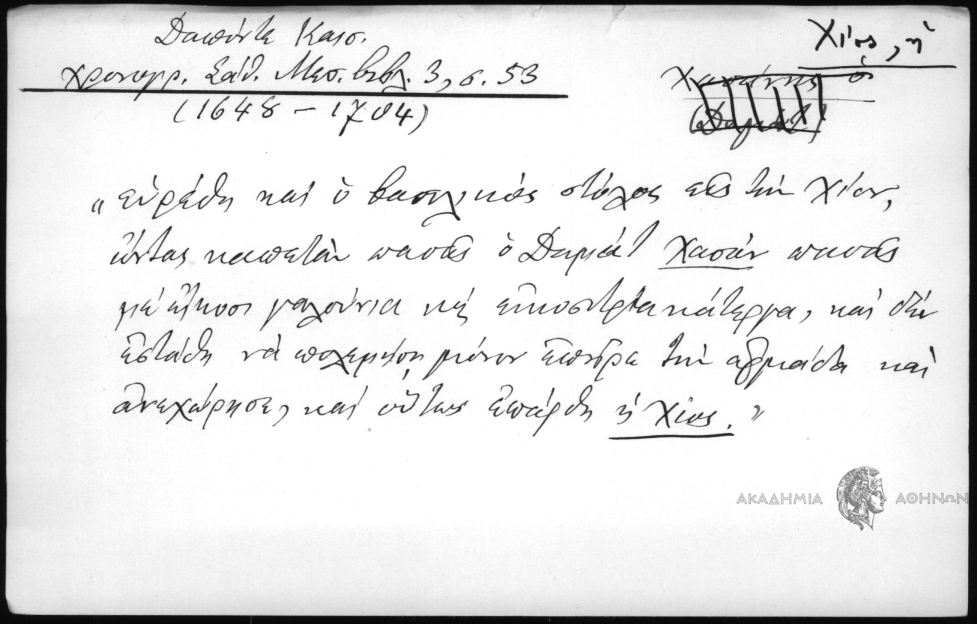 Δαπόντε Καισ.
χρονογρ. Σάθ. Μεσ. βιβλ. 3, σ. 53
(1648 – 1704)
Χίος, ἡ
ὁ
(Δαμάτ)
„εὑρέθη καὶ ὁ βασιλικὸς στόλος εἰς τὴν Χίον,
ὄντας καπετὰν πασᾶς ὁ Δαμὰτ Χασὰν πασᾶς
μὲ εἴκοσι γαλούνια καὶ εἰκοσιτρία κάτεργα, καὶ δὲν
ἐστάθη νὰ πολεμήσῃ, μόνον ἐπῆρε τὴν ἀρμάδα καὶ
ἀνεχώρησε, καὶ οὕτως ἐπάρθη ἡ Χίος."
ΑΚΑΔΗΜΙΑ ΑΘΗΝΩΝ